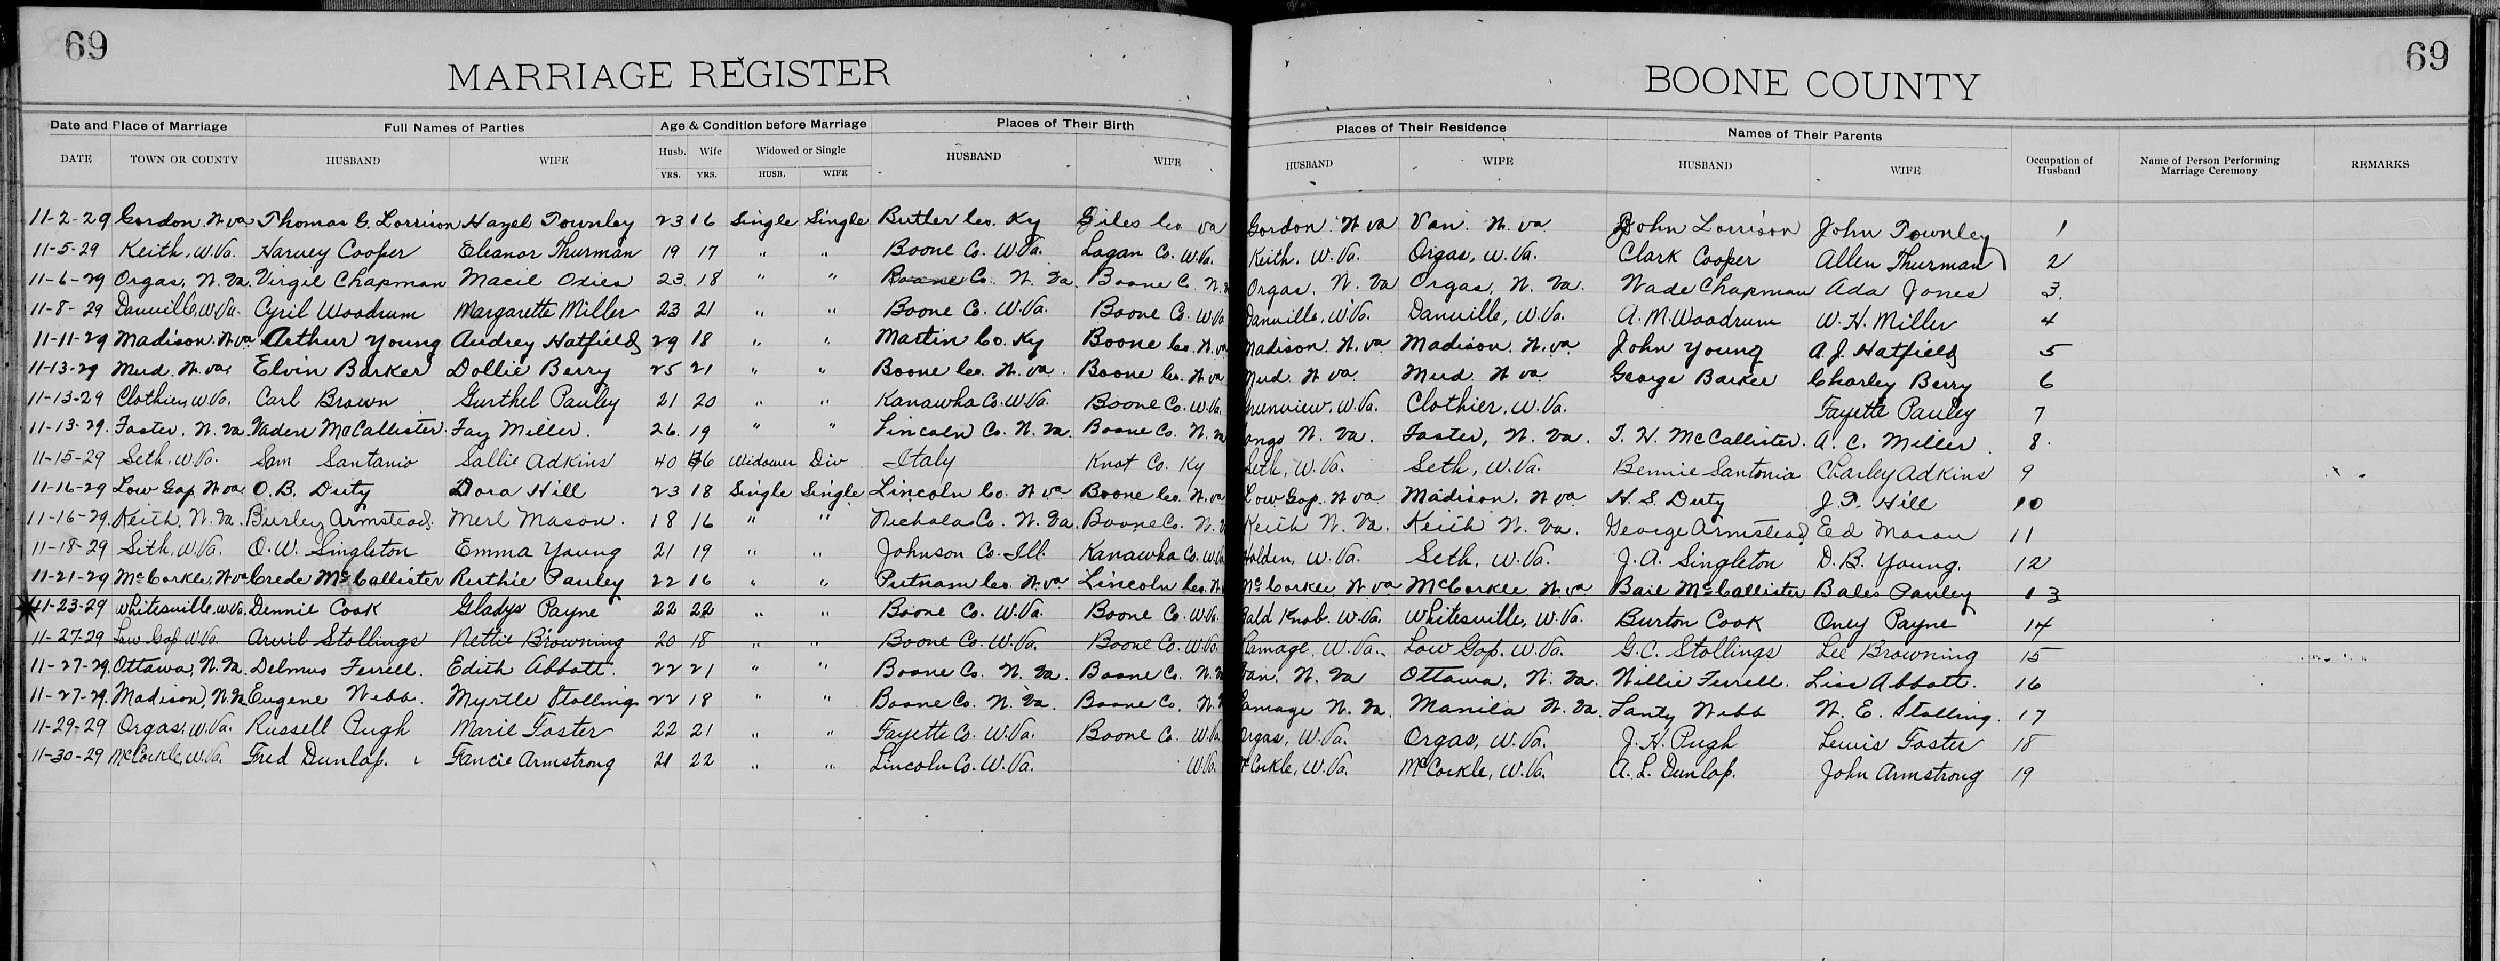 69 69
MARRIAGE REGISTER BOONE COUNTY
Date and Place of Marriage Full Names of Parties Age & Condition before Marriage Places of Their Birth Places of Their Residence Names of Their Parents
DATE TOWN OR COUNTY HUSBAND WIFE Husb. Wife Widowed or Single HUSBAND WIFE HUSBAND WIFE HUSBAND WIFE Occupation of Husband Name of Person Performing Marriage Ceremony REMARKS
YRS. YRS. HUSB. WIFE
11-2-29 Gordon W va Thomas C. Lorrison Hazel Townley 23 16 Single Single Butler Co. Ky Giles Co va Gordon W va Van W. va. John Lorrison John Townley 1
11-5-29 Keith, W.Va. Harvey Cooper Eleanor Thurman 19 17 " " Boone Co. W.Va. Logan Co. W.Va. Keith, W.Va. Orgas, W.Va. Clark Cooper Allen Thurman 2
11-6-29 Orgas, W. Va. Virgil Chapman Macil Oxies 23 18 " " Boone Co. W. Va. Boone C. W. Orgas, W. Va Orgas, W. Va. Wade Chapman Ada Jones 3.
11-8-29 Danville, W.Va. Cyril Woodrum Margarette Miller 23 21 " " Boone Co. W.Va. Boone Co. W.Va. Danville, W.Va. Danville, W.Va. A. M Woodrum W. H. Miller 4
11-11-29 Madison. W va Arthur Young Audrey Hatfield 29 18 " " Martin Co. Ky Boone Co. W. va Madison. W. va. Madison. W. va. John Young A. J. Hatfield 5
11-13-29 Mud. W. va. Elvin Barker Dollie Berry 25 21 " " Boone Co. W. va. Boone Co. W va Mud. W va. Mud. W va. George Barker Charley Berry 6
11-13-29 Clothier, W Va. Carl Brown Gurthel Pauley 21 20 " " Kanawha Co. W.Va. Boone Co. W.Va. W.Va. Clothier, W.Va. Fayette Pauley 7
11-13-29. Foster, W. Va. Vaden McCallister. Fay Miller. 26. 19 " " Lincoln Co. W. Va. Boone Co. W. Va W. Va. Foster, W. Va. T. H. McCallister. A. C. Miller. 8.
11-15-29 Seth, W.Va. Sam Santania Sallie Adkins 40 46 Widower Div Italy Knot Co. Ky Seth, W.Va. Seth, W.Va. Bennie Santonia Charley Adkins 9
11-16-29 Low Gap W va. O. B. Duty Dora Hill 23 18 Single Single Lincoln Co. W va Boone Co. W. va Low Gap. W va Madison. W va H. S. Duty J. T. Hill 10
11-16-29. Keith, W. Va. Burley Armstead. Merl Mason. 18 16 " " Nicholas Co. W. Va. Boone Co. W. Keith W. Va. Keith W. Va. George Armstead Ed Mason 11
11-18-29 Seth, W.Va. O. W. Singleton Emma Young 21 19 " " Johnson Co. Ill. Kanawha Co. W.Va Holden, W.Va. Seth, W.Va. J. A. Singleton D. B. Young. 12
11-21-29 McCorkle, W va Crede McCallister Ruthie Pauley 22 16 " " Putnam Co. W. va Lincoln Co. W. McCorkle W va McCorkle W. va Bail McCallister Bales Pauley 13
11-23-29 Whitesville, W.Va. Dennie Cook Gladys Payne 22 22 " " Boone Co. W.Va. Boone Co. W.Va. Bald Knob. W.Va. Whitesville, W.Va. Burton Cook Oney Payne 14
11-27-29 Low Gap W.Va. Arvil Stollings Nettie Browning 20 18 " " Boone Co. W.Va. Boone Co. W.Va. Ramage, W.Va. Low Gap. W.Va. G. C. Stollings Lee Browning 15
11-27-29. Ottawa, W. Va. Delmus Ferrell. Edith Abbott. 22 21 " " Boone Co. W. Va. Boone Co. W. Va Van, W. Va Ottawa, W. Va. Willie Ferrell. Liss Abbott. 16
11-27-29. Madison, W. Va Eugene Webb. Myrtle Stollings 22 18 " " Boone Co. W. Va. Boone Co. W. Ramage W. Va. Manila W. Va. Lanty Webb W. E. Stolling. 17
11-29-29 Orgas, W.Va. Russell Pugh Marie Foster 22 21 " " Fayette Co. W.Va. Boone Co. W.Va. Orgas, W.Va. Orgas, W.Va. J. H. Pugh Lewis Foster 18
11-30-29 McCorkle, W.Va. Fred Dunlap. Fancie Armstrong 21 22 " " Lincoln Co. W.Va. W.Va. McCorkle, W.Va. McCorkle, W.Va. A. L. Dunlap. John Armstrong 19